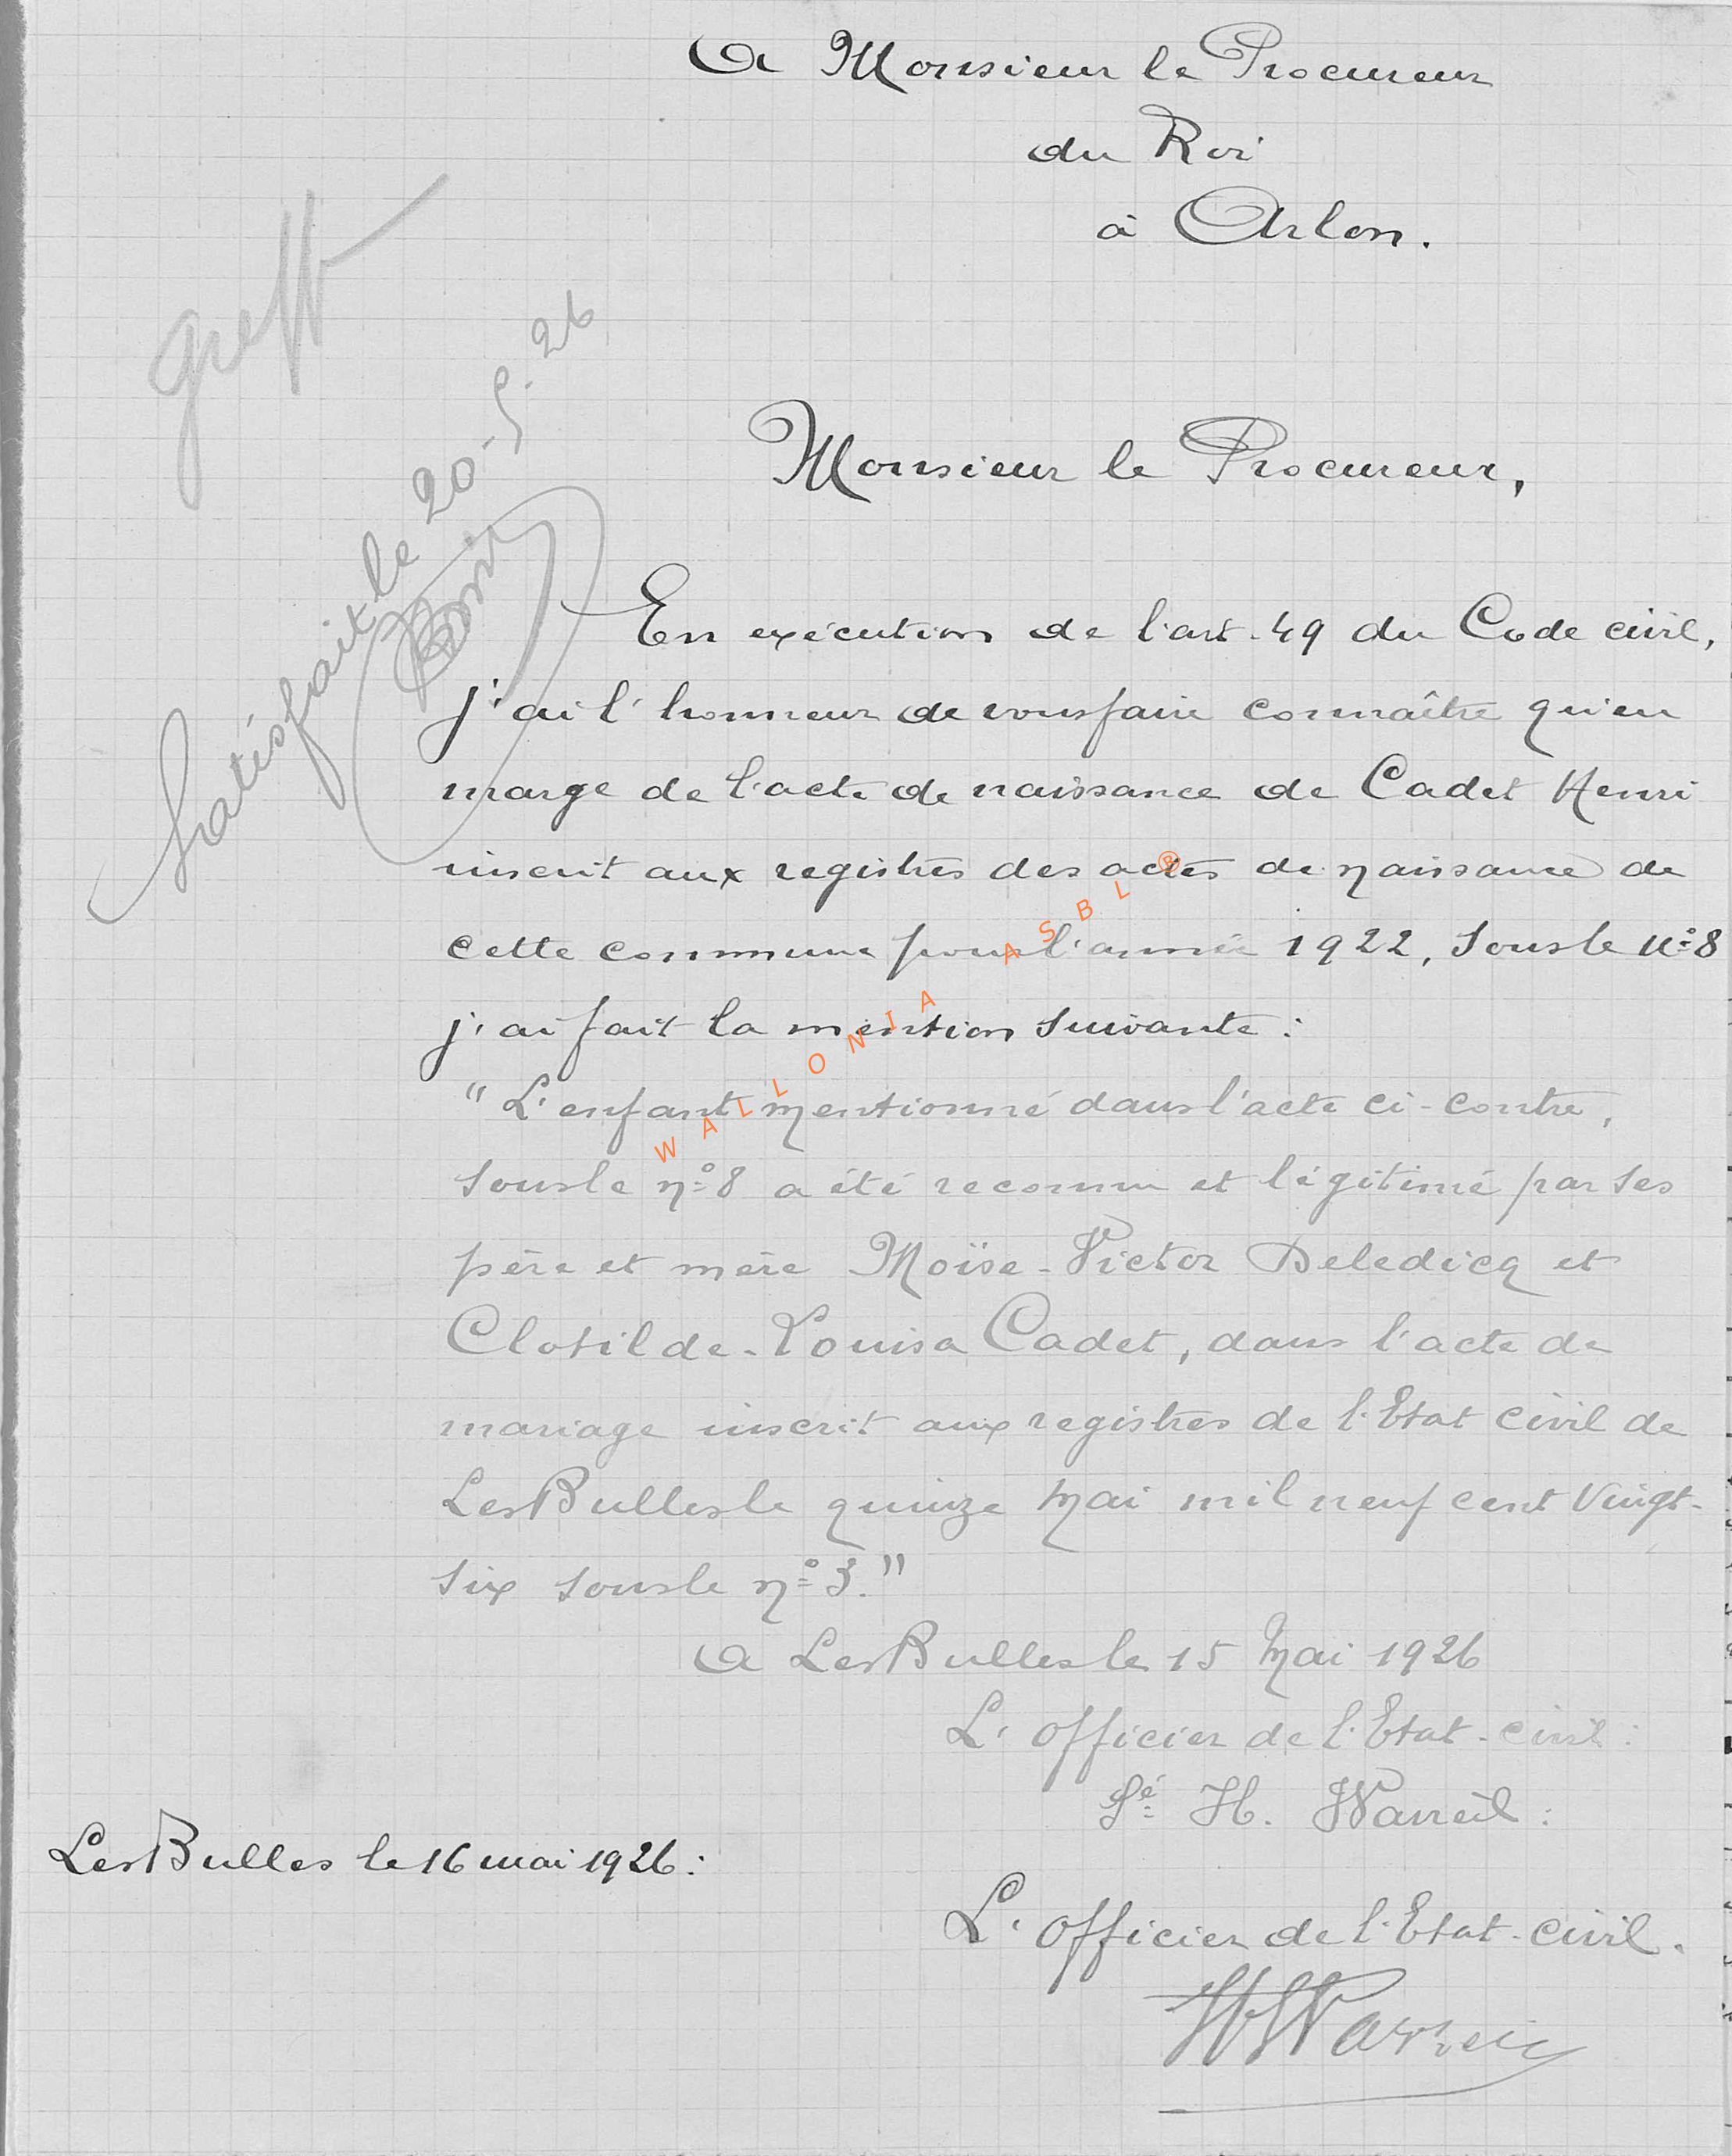 A Monsieur le Procureur
du Roi
à Arlon.
greff
Satisfait le 20-5-26
Monsieur le Procureur,
En exécution de l'art. 49 du Code civil,
j'ai l'honneur de vous faire connaître qu'en
marge de l'acte de naissance de Cadet Henri
inscrit aux registres des actes de naissance de
cette commune pour l'année 1922, sous le n° 8
j'ai fait la mention suivante :
" L'enfant mentionné dans l'acte ci-contre,
sous le n° 8 a été reconnu et légitimé par ses
père et mère Moïse-Victor Deledicq et
Clotilde-Louisa Cadet, dans l'acte de
mariage inscrit aux registres de l'Etat civil de
Les Bulles le quinze Mai mil neuf cent vingt-
six sous le n° 3."
A Les Bulles le 15 Mai 1926
L'officier de l'Etat-civil :
Sé H. Warreil :
Les Bulles le 16 mai 1926 :
L'officier de l'Etat-civil.
H Warreil
WALLONIA ASBL ®